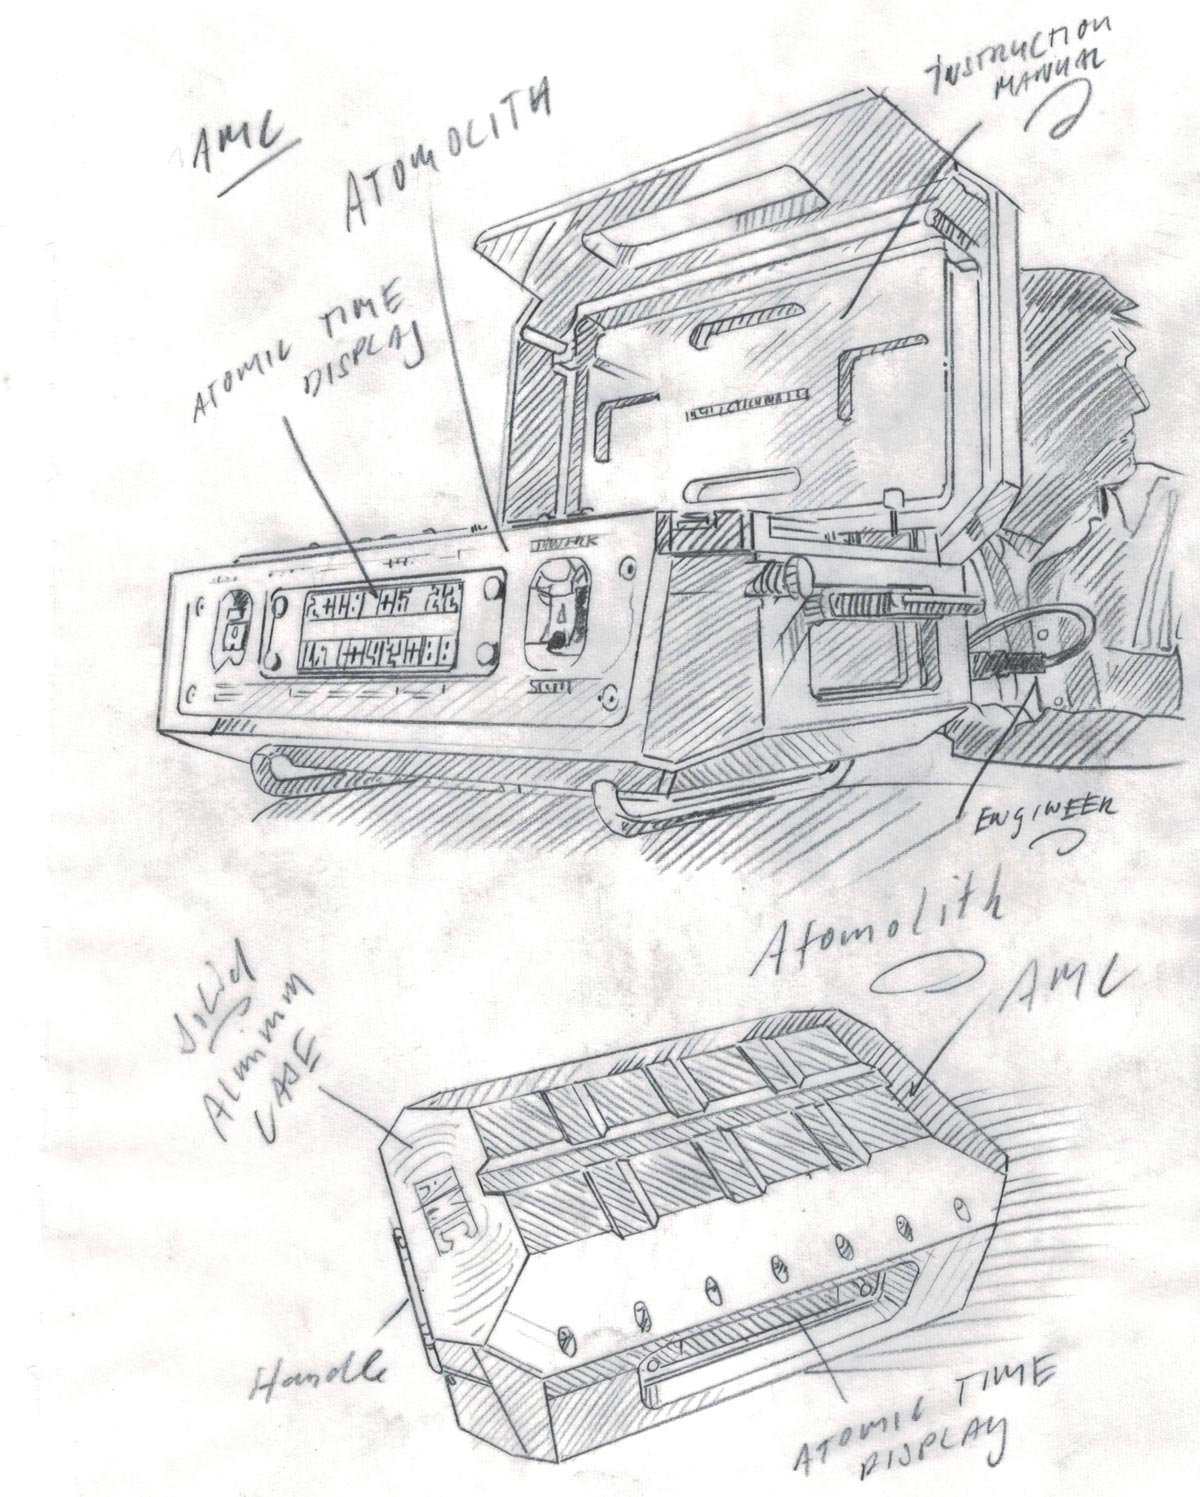 AMC
ATOMOLITH
INSTRUCTION
MANUAL
ATOMIC TIME
DISPLAY
ENGINEER
Atomolith
AMC
Solid
Aluminm
CASE
AMC
Handle
ATOMIC TIME
DISPLAY